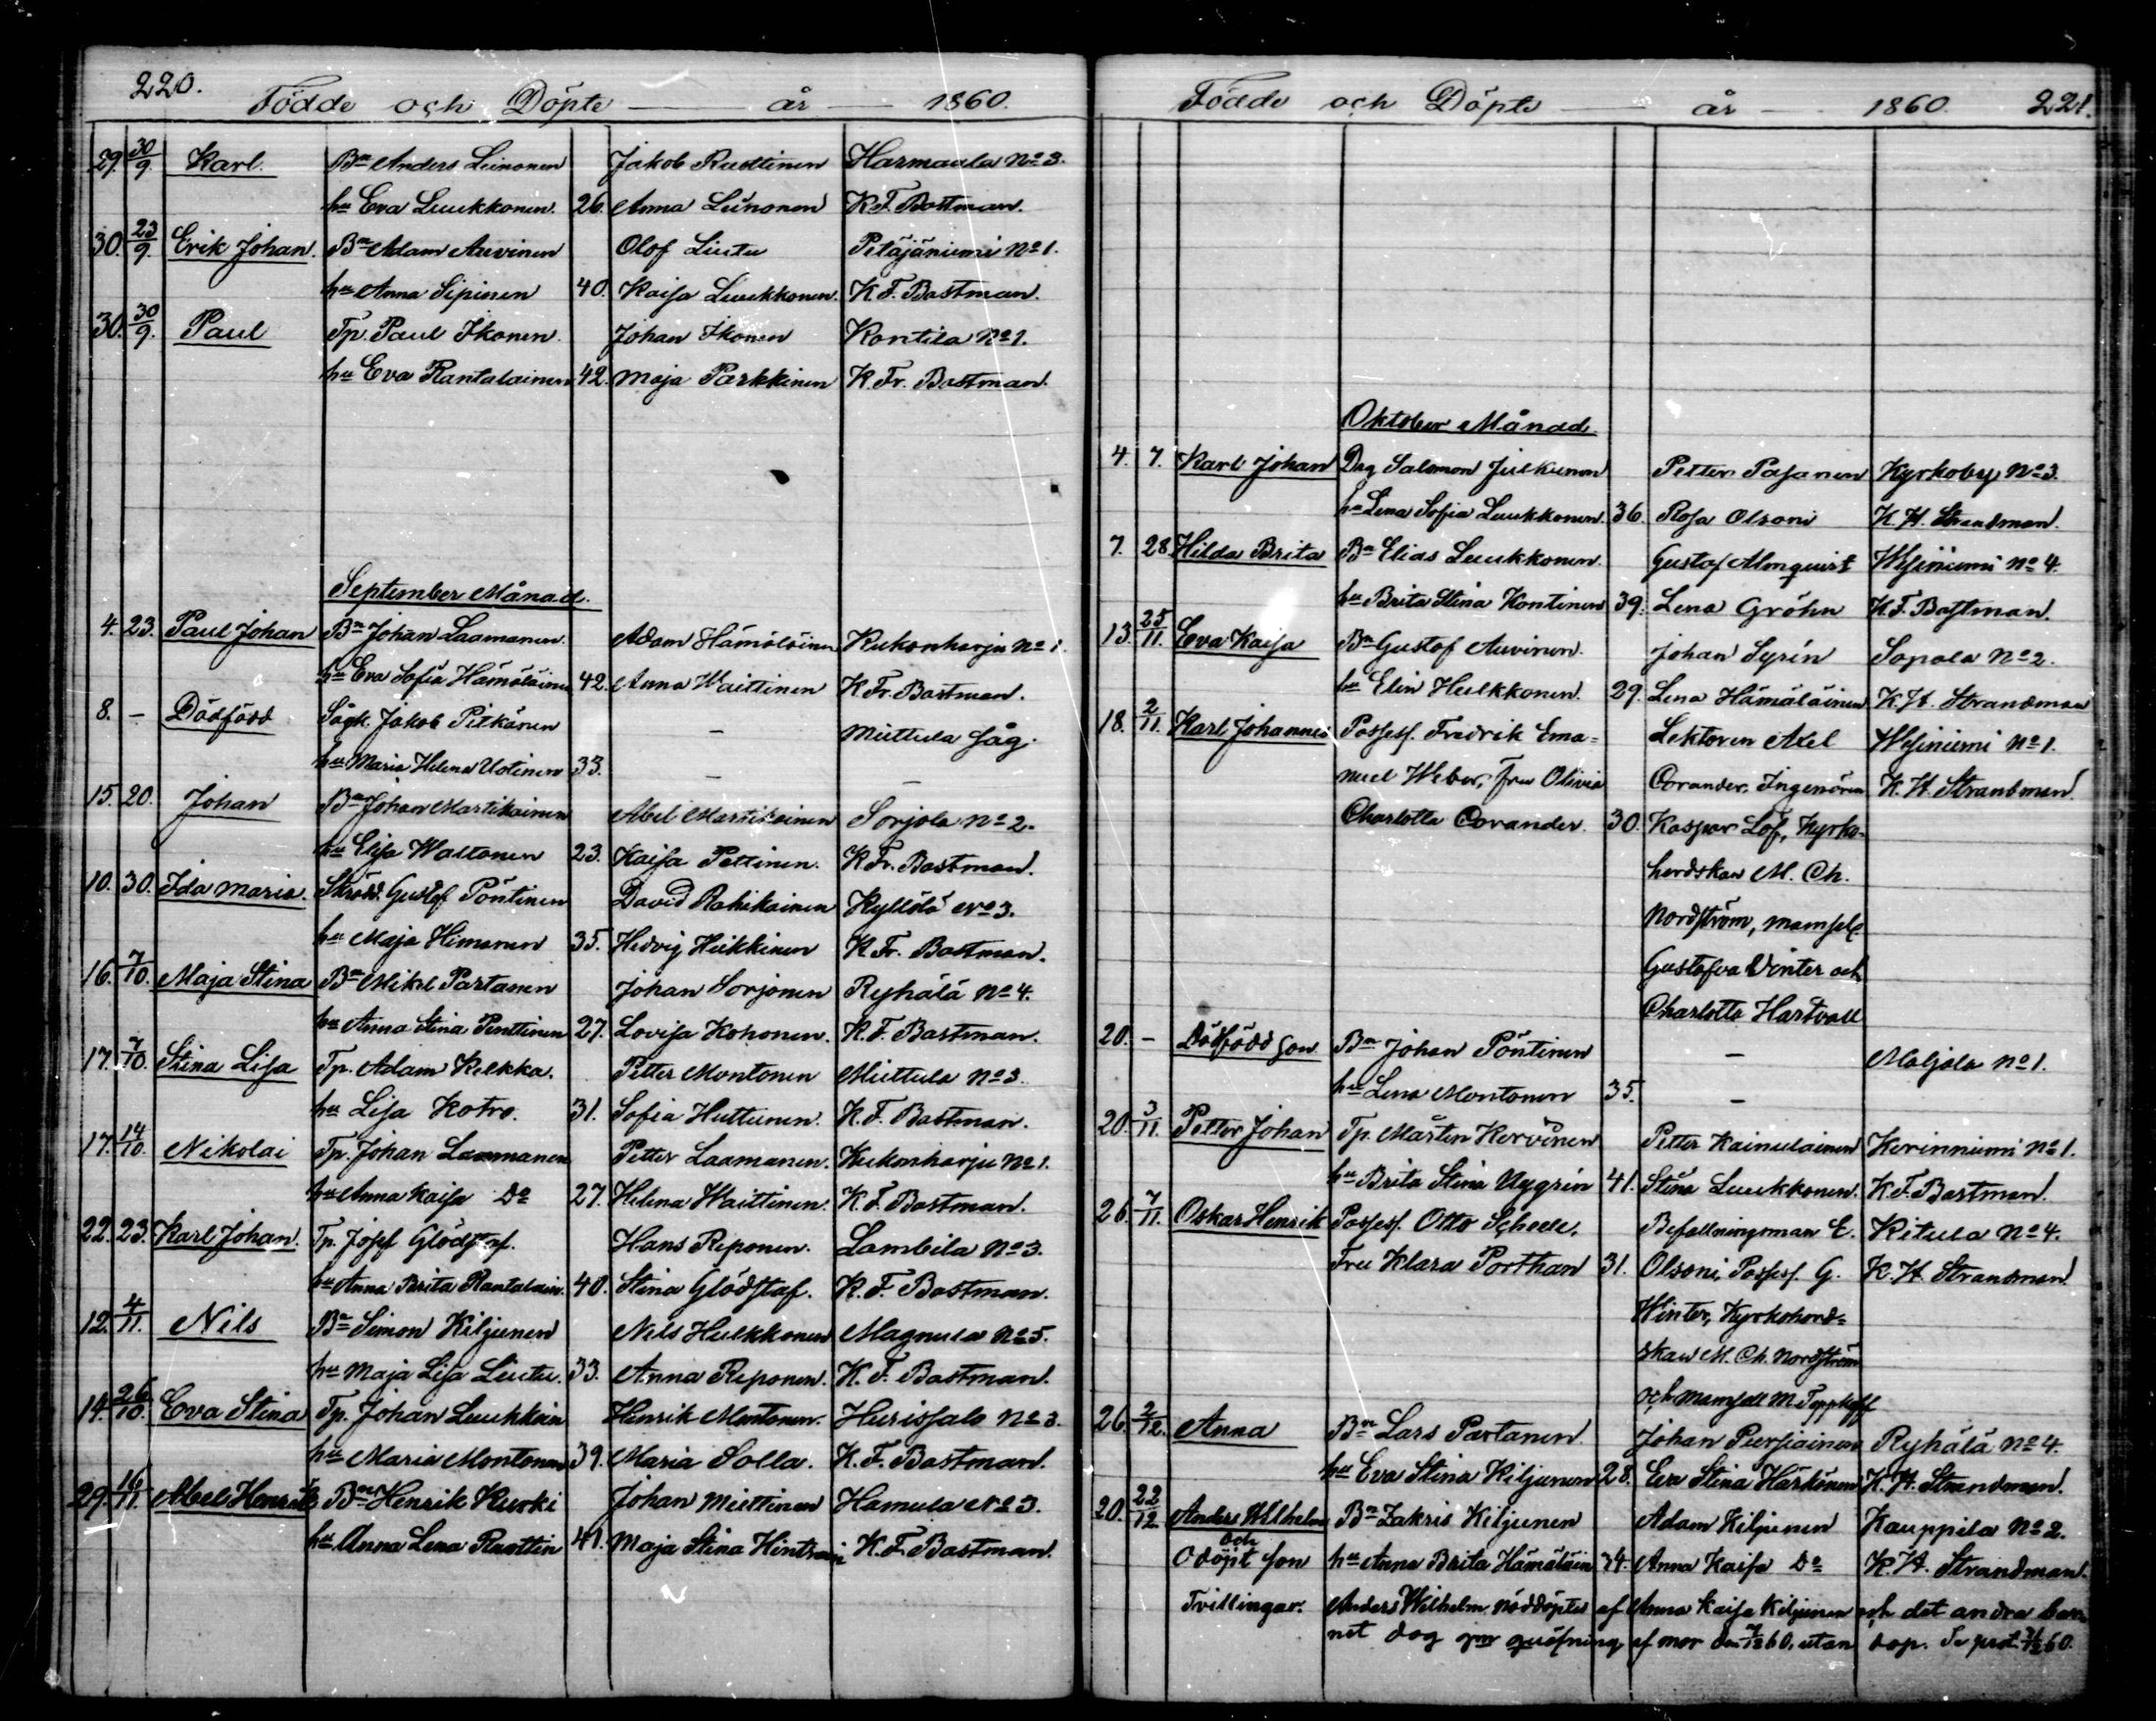 220.
Födde och Döpte — år — 1860.
29. 30/9. Karl. Bn Anders Leinonen Jakob Ruottinen Harmaala No 3.
hu Eva Luukkonen. 26. Anna Leinonen K.F. Bastman.
30. 23/9. Erik Johan. Bn Adam Auvinen Olof Liutu Petäjäniemi No 1.
hu Anna Sipinen 40. Kaisa Luukkonen. K.F. Bastman.
30. 30/9. Paul Tp. Paul Ikonen. Johan Ikonen Kontila No 1.
hu Eva Rantalainen 42. Maja Parkkinen K. Fr. Bastman.
September Månad.
4. 23. Paul Johan Bn Johan Laamanen. Adam Hämäläinen Kukonharju No 1.
hu Eva Sofia Hämäläinen 42. Anna Waittinen K. Fr. Bastman.
8. – Dödfödd Sågk. Jakob Pitkänen – Miettula såg.
hu Maria Helena Uotinen 33. – –
15. 20. Johan Bn Johan Martikainen Abel Martikainen Sorjola No 2.
hu Elisa Waltonen 23. Kaisa Pettinen. K. Fr. Bastman.
10. 30. Ida Maria. Skrädd. Gustaf Pöntinen David Rahikainen Kyllölä No 3.
hu Maja Himanen 35. Hedvig Heikkinen K. Fr. Bastman.
16. 7/10. Maja Stina Bn Mikel Partanen Johan Sorjonen Ryhälä No 4.
hu Anna Stina Penttinen 27. Lovisa Kohonen. K. F. Bastman.
17. 7/10. Stina Lisa Tp. Adam Kelkka. Petter Montonen Miettula No 3.
hu Lisa Kotro. 31. Sofia Huttunen. K. F. Bastman.
17. 14/10. Nikolai Tp. Johan Laamanen Petter Laamanen. Kukonharju No 1.
hu Anna Kaisa Do 27. Helena Waittinen. K. F. Bastman.
22. 23. Karl Johan. Tp. Josef Glödstaf. Hans Reponen. Lambila No 3.
hu Anna Brita Rantalain. 40. Stina Glödstaf. K. F. Bastman.
12. 4/11. Nils Bn Simon Kiljunen Nils Hulkkonen Magnula No 5.
hu Maja Lisa Liutu. 33. Anna Reponen. K. F. Bastman.
14. 26/10. Eva Stina Tp. Johan Luukkain Henrik Montonen. Hurissalo No 3.
hu Maria Montonen 39. Maria Solla. K. F. Bastman.
29. 16/11. Abel Henrik Bn Henrik Kurki Johan Miettinen Hamula No 3.
hu Anna Lena Ruottin 41. Maja Stina Hintsain K. F. Bastman.
Födde och Döpte — år — 1860. 221.
Oktober Månad.
4. 7. Karl Johan Drg Salomon Julkunen Petter Pasanen Kyrkoby No 3.
hu Lena Sofia Luukkonen. 36. Rosa Olsoni K. H. Strandman.
7. 28. Hilda Brita Bn Elias Luukkonen. Gustaf Almquist Wesiniemi No 4.
hu Brita Stina Kontinen 39. Lena Gröhn K.F. Bastman.
13. 25/11. Eva Kaisa Bn Gustaf Auvinen. Johan Syrén Sopala No 2.
hu Elin Hulkkonen. 29. Lena Hämäläinen K. H. Strandman
18. 2/11. Karl Johannes Possess. Fredrik Ema- Lektoren Axel Wesiniemi No 1.
nuel Weber, fru Olivia Corander, Ingeniören K. H. Strandman.
Charlotta Corander. 30. Kaspar Löf, Kyrko-
herdskan M. Ch.
Nordström, mamsel.
Gustafva Winter och
Charlotta Hartvall
20. – Dödfödd son Bn Johan Pöntinen – Maljala No 1.
hu Lena Montonen 35. –
20. 3/11. Petter Johan Tp. Mårten Kervinen Petter Kainulainen Kerinniemi No 1.
hu Brita Stina Nygrén 41. Stina Luukkonen. K.F. Bastman.
26. 7/11. Oskar Henrik Possess. Otto Scheele. Befallningsman E. Kitula No 4.
Fru Klara Porthan 31. Olsoni, Possess. G. K. H. Strandman.
Winter, Kyrkoherd-
skan M. Ch. Nordström
och mamsell M.
26. 2/12. Anna Bn Lars Partanen. Johan Pursiainen Ryhälä No 4.
hu Eva Stina Kiljunen 28. Eva Stina Härkönen K. H. Strandman.
20. 22/12. Anders Wilhelm Bn Zakris Kiljunen Adam Kiljunen Kauppila No 2.
och odöpt son hu Anna Brita Hämäläin 34. Anna Kaisa Do K. H. Strandman.
Tvillingar. Anders Wilhelm nöddöptes af Anna Kaisa Kiljunen och det andra bar-
net dog af mor den 7/12 60, utan dop. Se prot. 60.